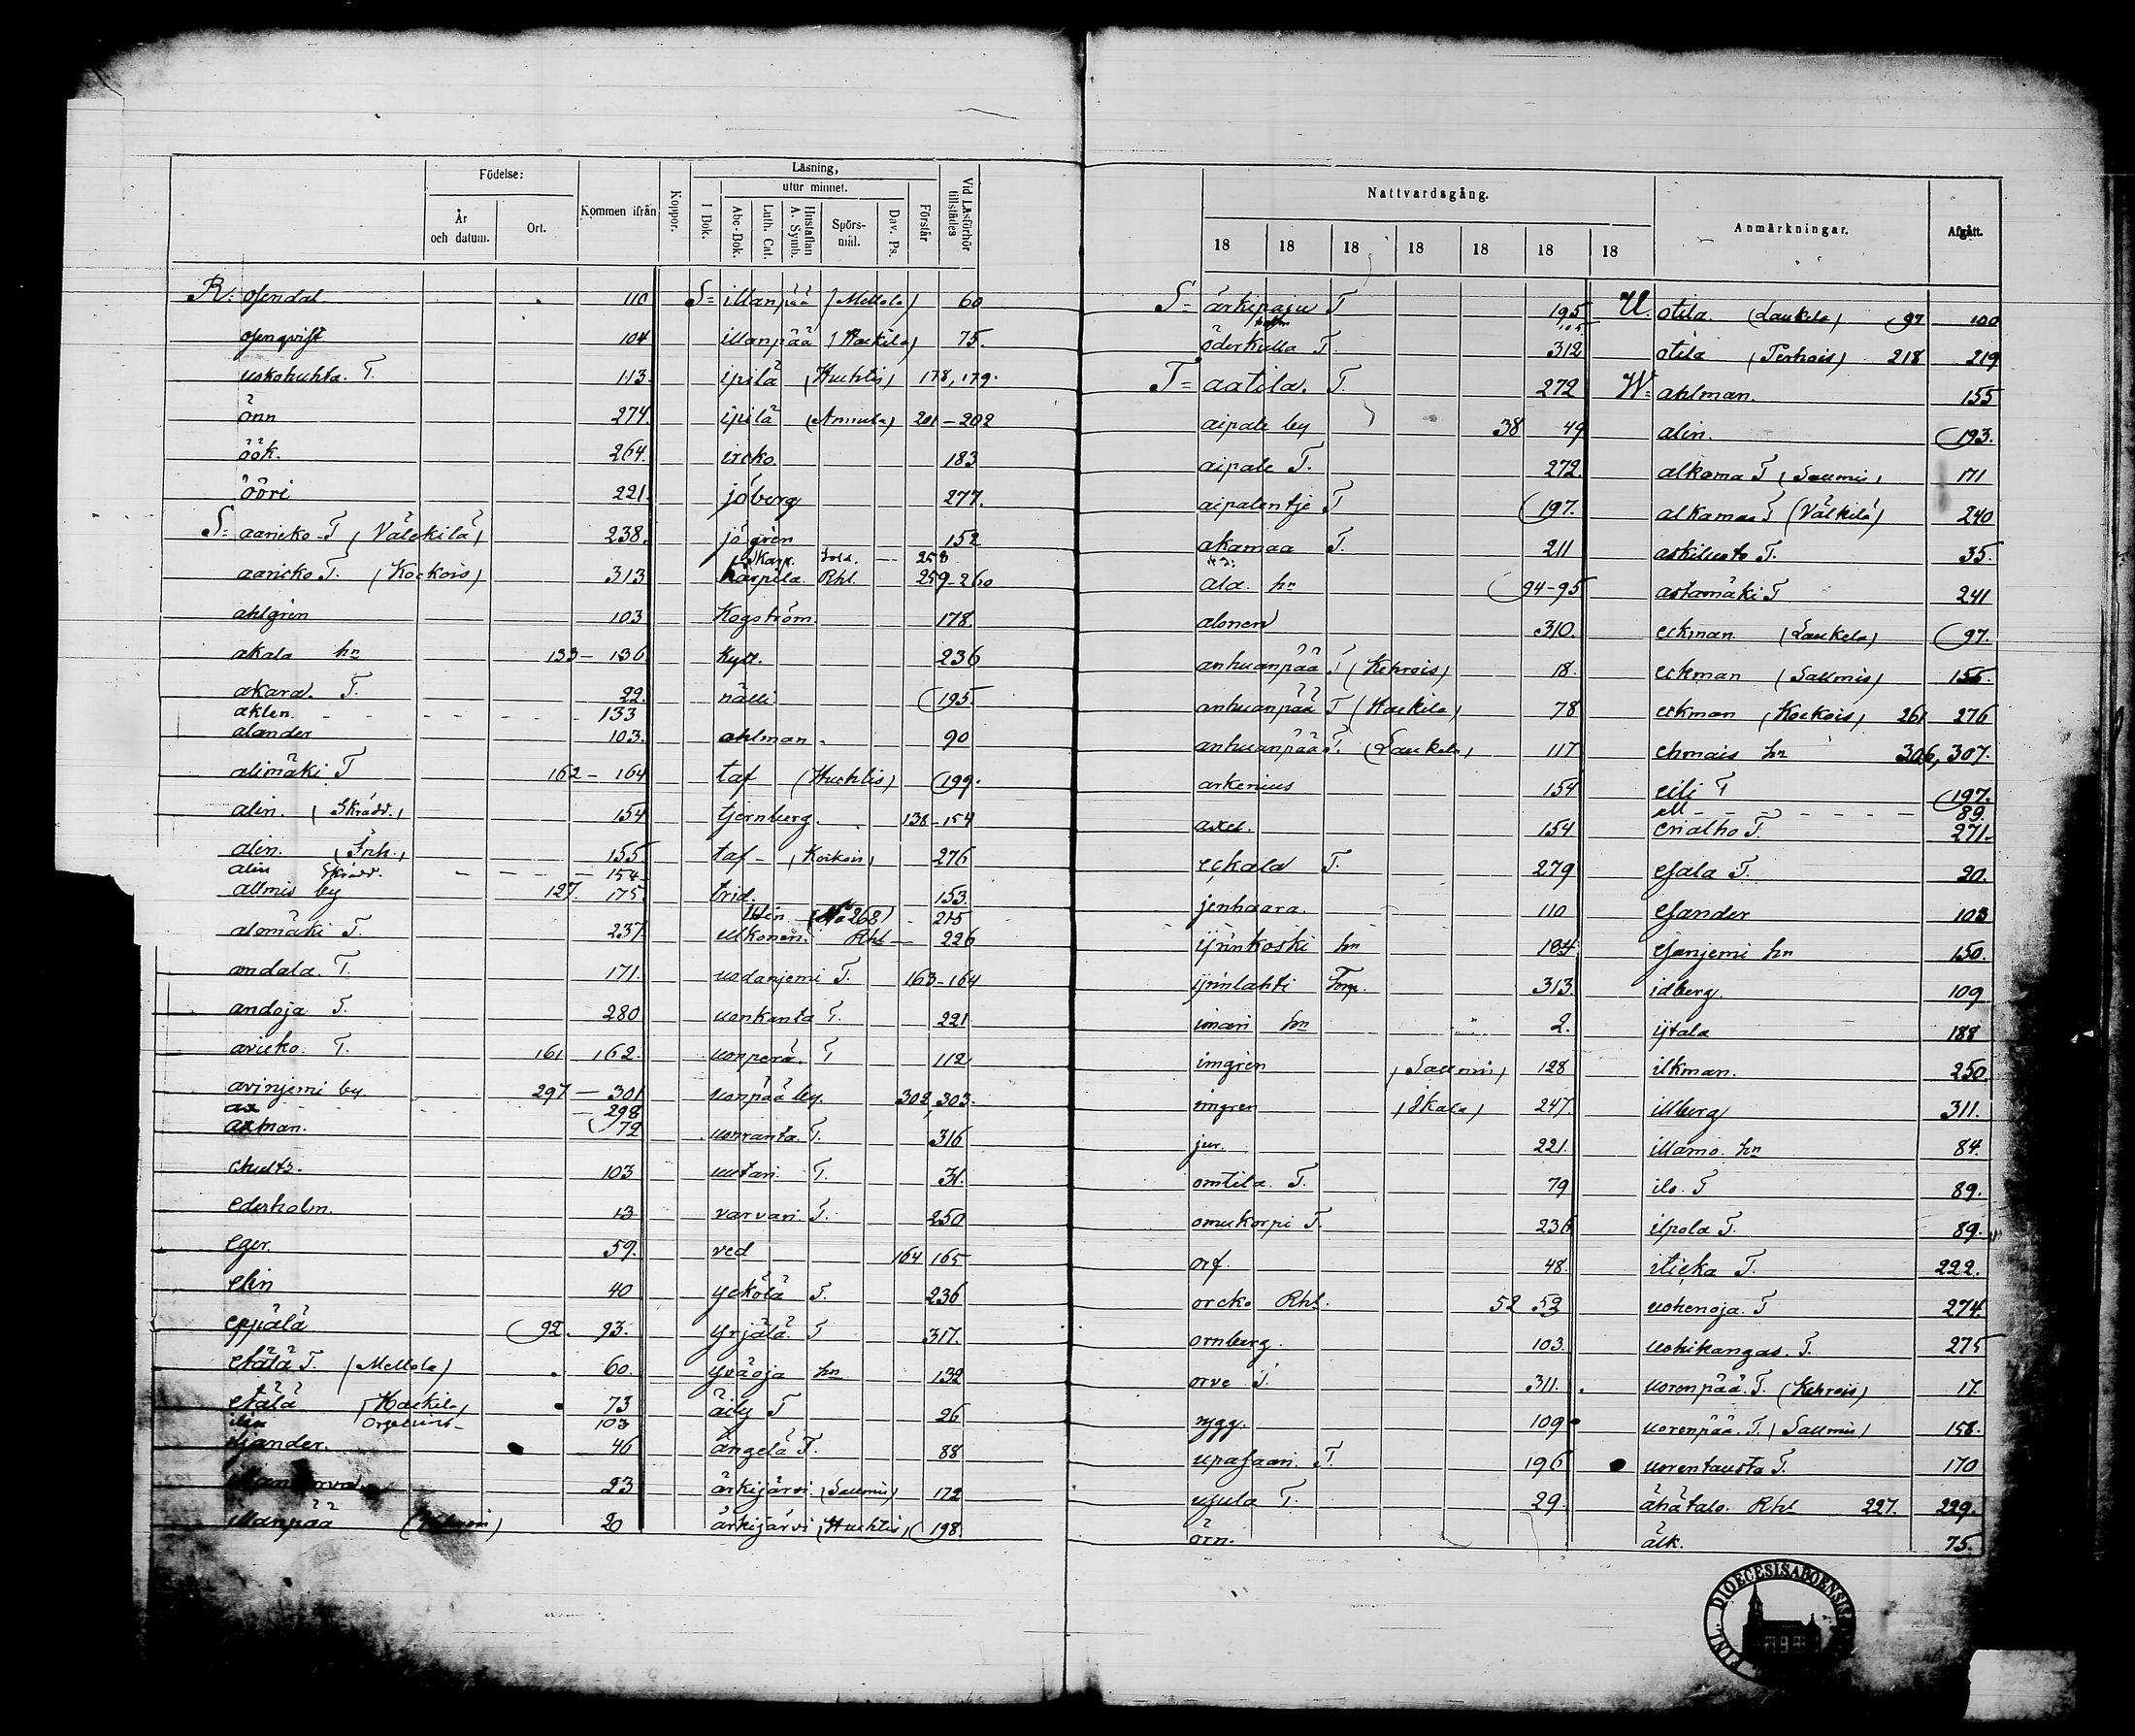 Födelse:
År
och datum.
Ort.
Kommen ifrån
Koppor.
Läsning,
utur minnet.
I Bok.
Abc-Bok.
Luth. Cat.
Hustaflan
A. Symb.
Spörs-
mål.
Dav. Ps.
Förstår
Vid Läsförhör
tillstädes
R: osendal 110
osenqvist 104
uokohuhta. T. 113.
önn 274.
öök. 264.
ööri 221.
S= aaricko T (Välckilä) 238.
aaricko T. (Kockois) 313
ahlgren 103
akala hn 133-136
akara. T. 22.
aklen. 133
alander 103.
alimäki T 162-164
alin. (Skrädd.) 154
alin. (Inh.) 155
alin Skrädd. 154
allmis by 127. 175
alomäki T. 237
andala. T. 171.
andoja T. 280
aricko. T. 161 162.
arinjemi by 297-301
ax 298
axman. 72
chultz. 103
ederholm. 13
eger. 59.
elin 40
eppälä 92. 93.
etälä T. (Mellola) 60.
etälä (Hackila) 73
103
iljander. 46
23
illanpää 20
S= illanpää (Mellola) 60
illanpää (Hackila) 75.
ipilä (Huchtis) 178, 179.
ipilä (Annula) 201-202
ircko. 183
jöberg 277.
jögren 152
Skarp. Sold. 258
Kärpilä Rhl. 259-260
Kogström. 178
Kytt. 236
nälli. 195.
ahlman 90
taf (Huchtis) 199.
tjernberg. 138-154
taf (Kockois) 276
trid. 153.
(No 268) 215
ulkonen. Rhl 226
uodanjemi T. 163-164
uonkanta T. 221
uonperä. T 112
uonpää by 302, 303.
uonranta. T. 316
uutari T. 31.
varvari. T. 250
ved 164 165
yckölä T. 236
yrjälä. T 317.
yväoja hn 132
äily T 26
ängelä T. 88
ärkijärvi (Sallmis) 172
ärkijärvi (Huchtis) 198.
Nattvardsgång.
18 18 18 18 18 18 18
Anmärkningar.
Afgått.
S= ärkipaju T 195
105
öderkulla T. 312
T= aatila. T. 272
aipale by 38 49
aipale T. 272.
aipalentje T 197.
akamaa T. 211
ala. hn 94-95
alonen 310.
anhuanpää T (Kehrois) 18.
anhuanpää T (Hackila) 78
anhuanpää T. (Laukela) 117
arkenius 154
axel. 154
eckala T. 279
jenhaara. 110
ijrinkoski hn 184.
ijrinlahti Torp. 313.
imari hn 2.
imgren (Sallmis) 128
imgren (Skala) 247.
jur. 221.
omtila. T. 79
omukorpi T. 236
orf. 48.
orcko Rhl. 52 53
ornberg. 103.
orve T. 311.
rygg. 109
upasaari. T. 196
ysula T. 29.
örn.
U. otila. (Laukela) 97 100
otila (Perhois) 218 219
W= ahlman. 155
alin. 193.
alkama T (Sallmis) 171
alkamaa T (Välkilä) 240
askilusto T. 35.
astamäki T 241
eckman (Laukela) 97.
eckman (Sallmis) 155.
eckman (Kockois) 261 276
ehmais hn 306, 307.
eili T 197.
ell 89.
erialho T. 271.
esala T. 20.
esander 103
esanjemi hn 150.
idberg. 109
ijtala 188
ilkman. 250.
illberg 311.
illamo. hn 84.
ilo. T 89.
ilpola T. 89.
iticka T. 222.
uohenoja. T 274.
uohikangas. T. 275
uorenpää. T. (Kehrois) 17.
uorenpää. T. (Sallmis) 158.
uorentausta T. 170
ähätalo. Rhl 227. 229.
älk. 75.
DIOECESIS ABOENSIS
FINL.